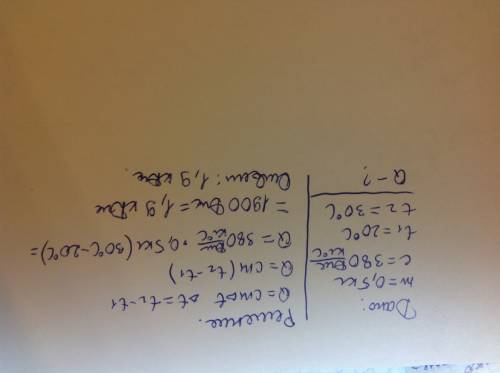 Дано:
m=0,5кг
c=380 Дж/кг°C
t₁=20°C
t₂=30°C
Q-?
Решение.
Q=cmΔt Δt=t₂-t₁
Q=cm(t₂-t₁)
Q=380 Дж/кг°C · 0,5кг (30°C-20°C)=
=1900Дж=1,9кДж
Ответ: 1,9 кДж.